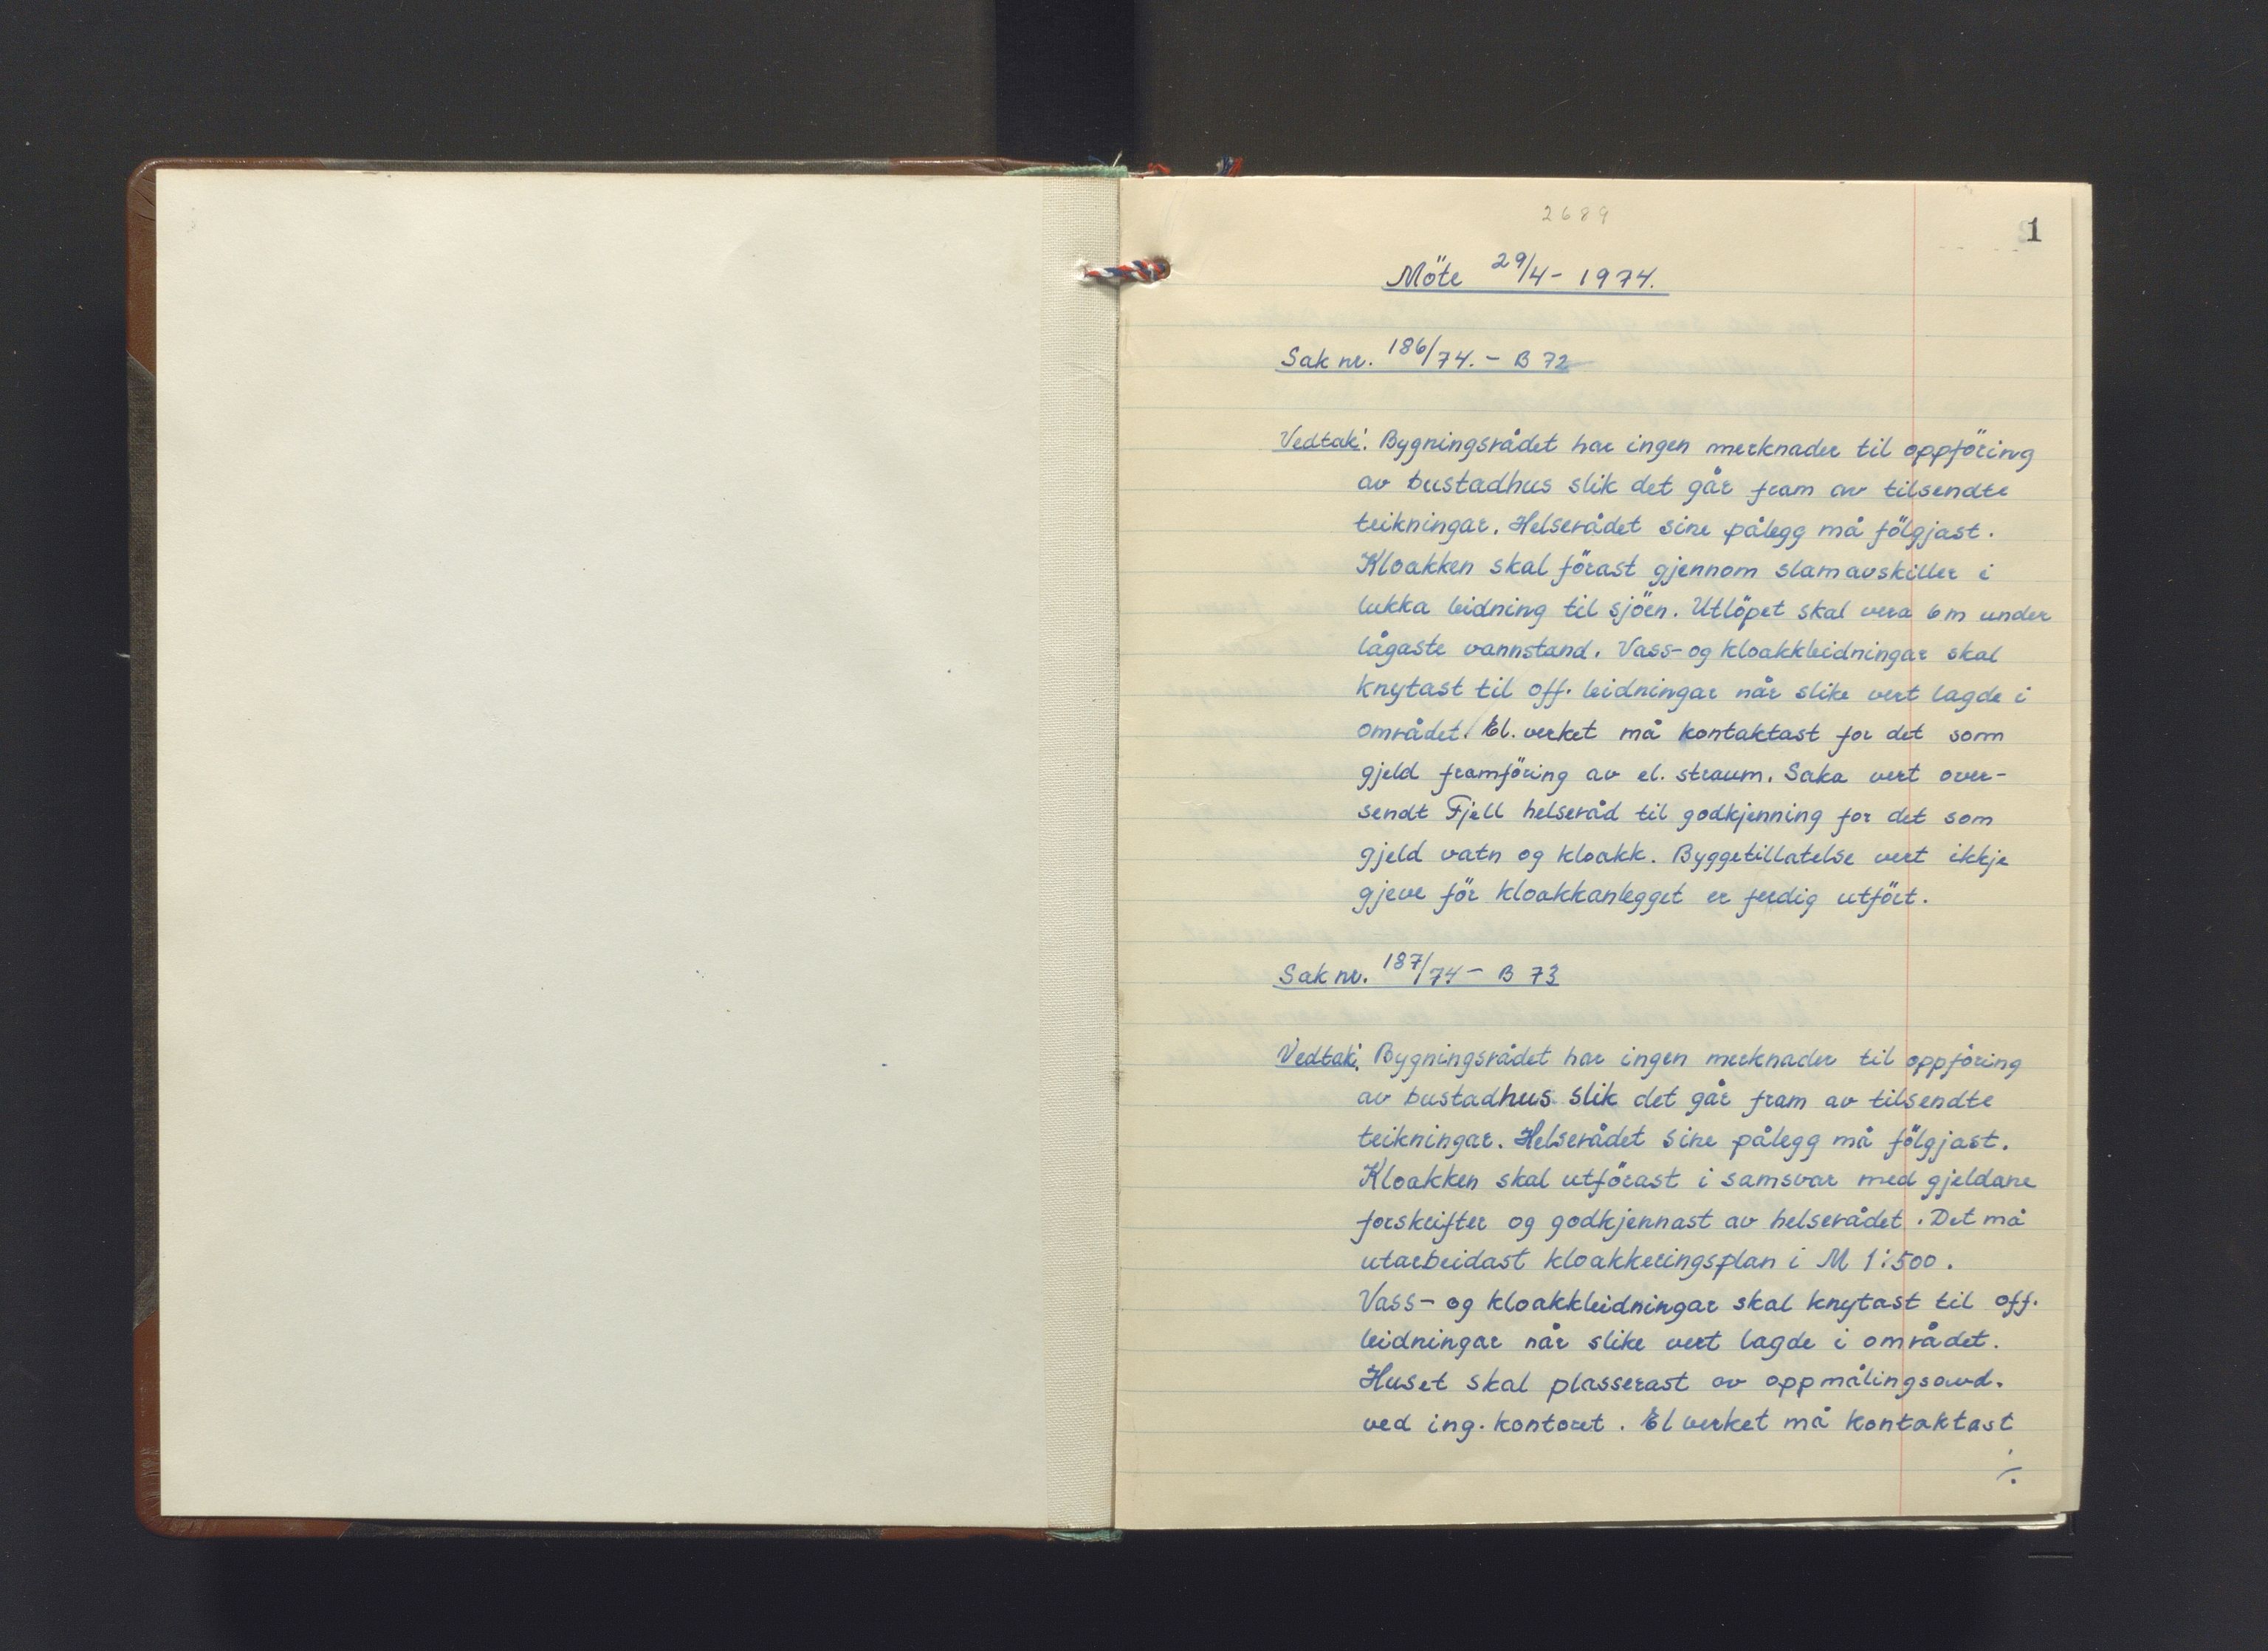 2689
1
Möte 29/4- 1974.
Sak nr. 186/74. - B 72
Vedtak: Bygningsrådet har ingen merknader til oppföring
av bustadhus slik det går fram av tilsendte
teikningar. Helserådet sine pålegg må fölgjast.
Kloakken skal förast gjennom slamavskiller i
lukka leidning til sjöen. Utlöpet skal vera 6 m under
lågaste vannstand. Vass- og kloakkleidningar skal
knytast til off. leidningar når slike vert lagde i
området. El. verket må kontaktast for det som
gjeld framföring av el. straum. Saka vert over-
sendt Fjell helseråd til godkjenning for det som
gjeld vatn og kloakk. Byggetillatelse vert ikkje
gjeve för kloakkanlegget er ferdig utfört.
Sak nr. 187/74 - B 73
Vedtak: Bygningsrådet har ingen merknader til oppföring
av bustadhus slik det går fram av tilsendte
teikningar. Helserådet sine pålegg må fölgjast.
Kloakken skal utförast i samsvar med gjeldane
forskrifter og godkjennast av helserådet. Det må
utarbeidast kloakkeringsplan i M 1:500.
Vass- og kloakkleidningar skal knytast til off.
leidningar når slike vert lagde i området.
Huset skal plasserast av oppmålingsavd.
ved ing. kontoret. El verket må kontaktast
./.